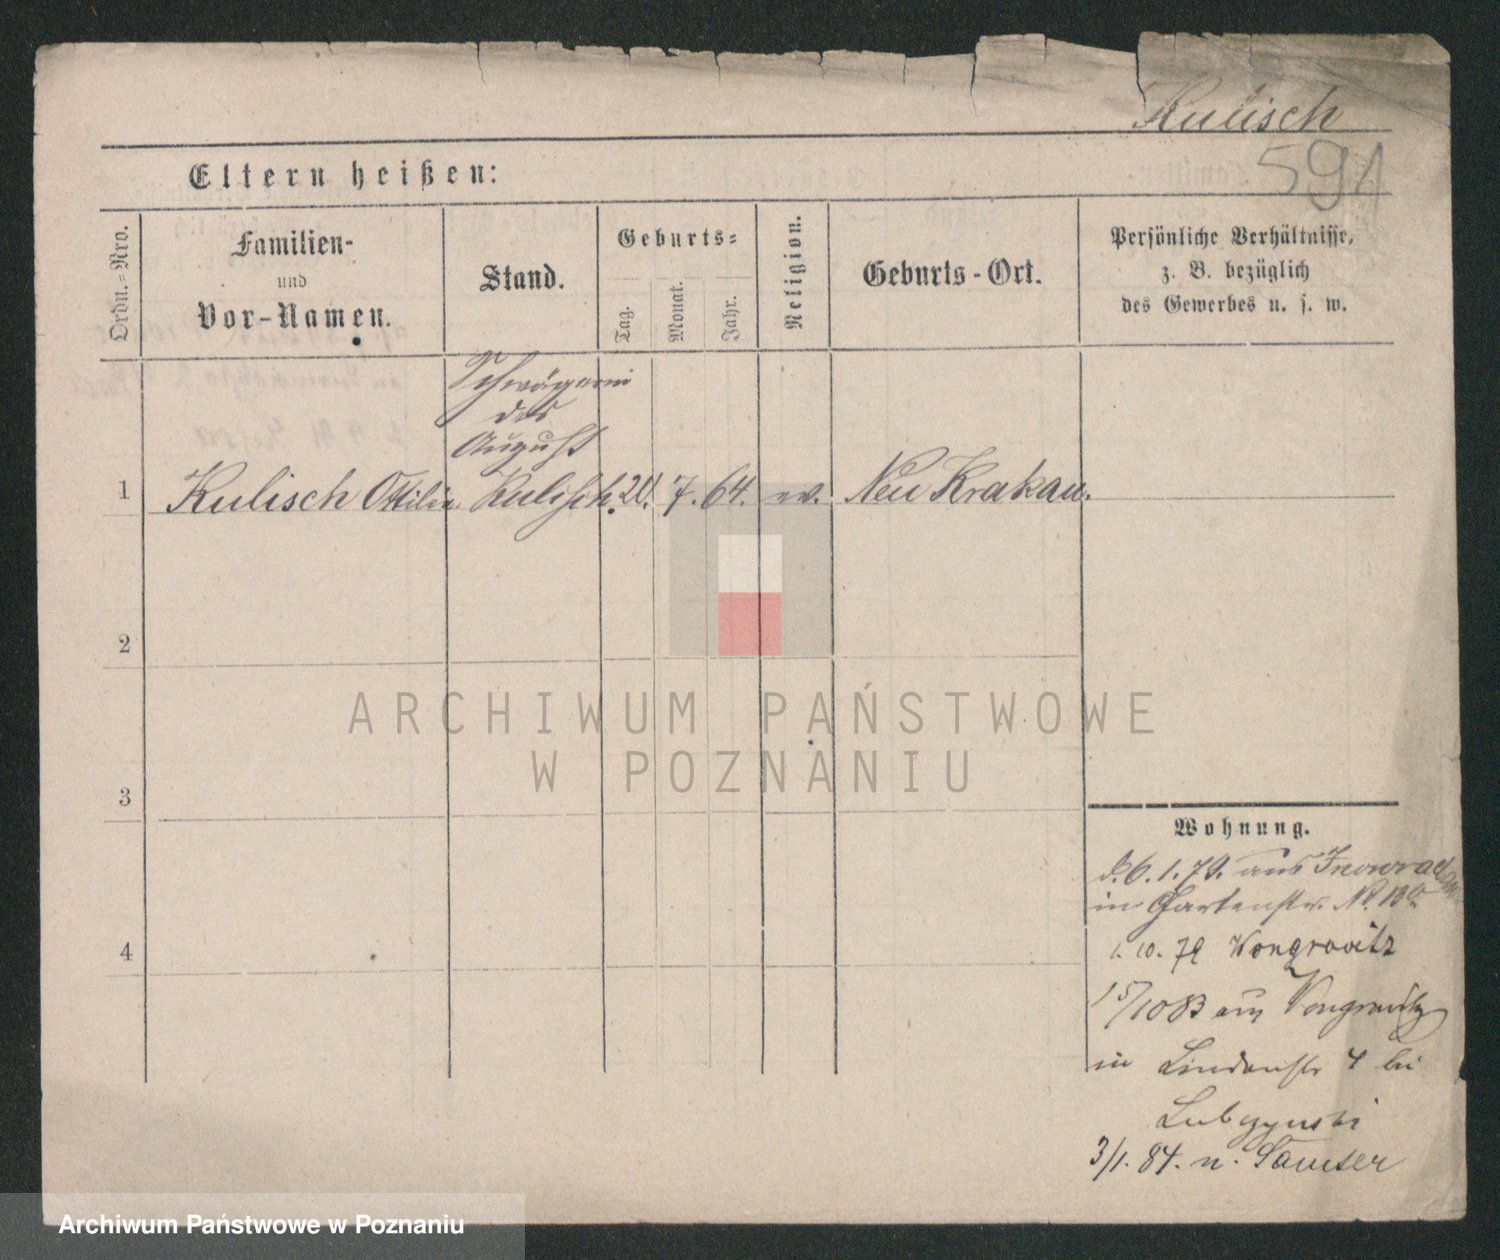 Kulisch
591
Eltern heißen:
Ordn.=Nro.
Familien-
und
Vor-Namen.
Stand.
Geburts=
Tag.
Monat.
Jahr.
Religion.
Geburts-Ort.
Persönliche Verhältnisse,
z. B. bezüglich
des Gewerbes u. s. w.
Schwägerin
des
August
1 Kulisch Ottilie Kulisch. 20. 7. 64. ev. Neu Krakau.
2
3
4
ARCHIWUM PAŃSTWOWE
W POZNANIU
Wohnung.
d. 6. 1. 79. aus
in Gartenstr. No.
1. 10. 79 Wongrowitz
15/10 83 aus Wongrowitz
in Lindenstr 4 bei
Lubczynski
3/1. 84. n. Samter
Archiwum Państwowe w Poznaniu